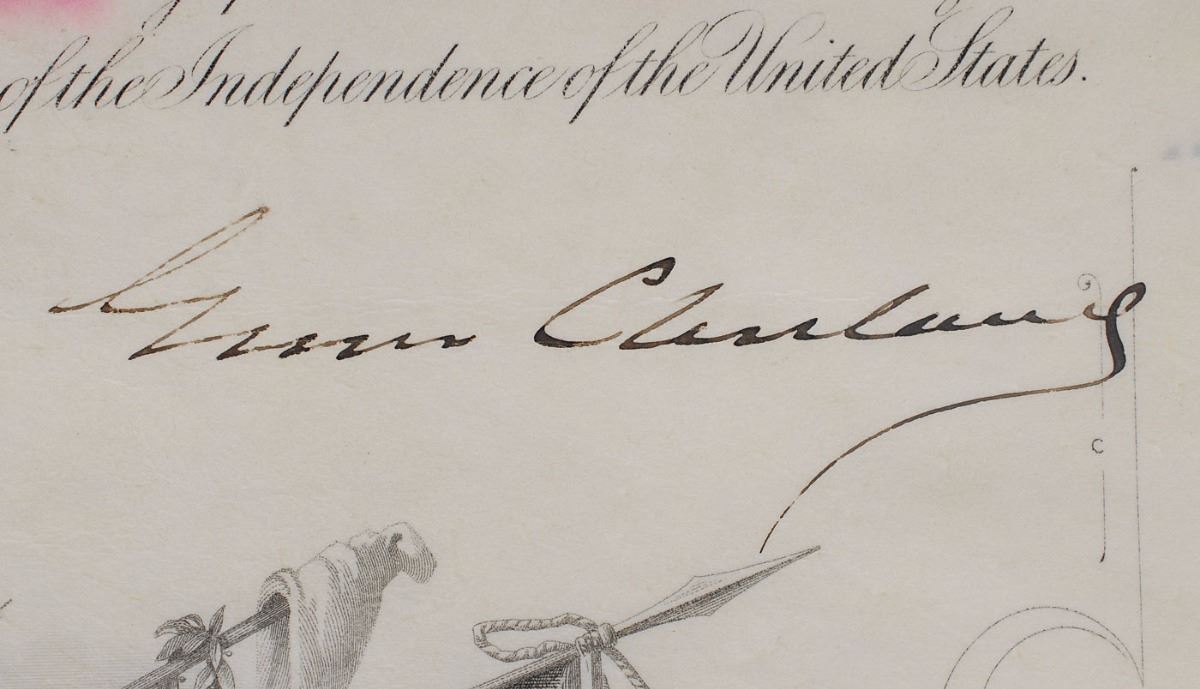 of the Independence of the United States.
Grover Cleveland
C